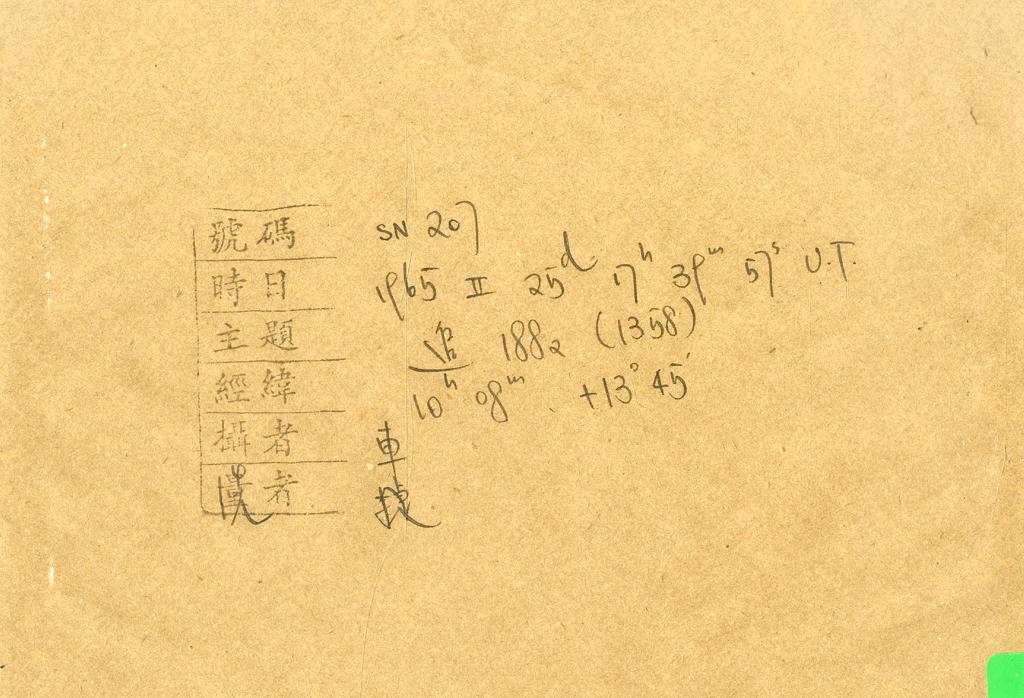 號碼 SN 207
時日 1965 II 25d 17h 39m 57s U.T.
主題 追 1882 (1358)
經緯 10h 08m +13° 45'
攝者 車
者